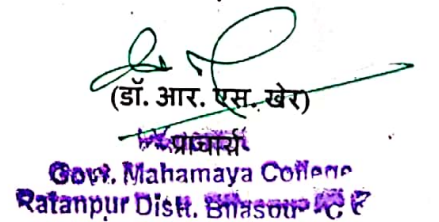 (डॉ. आर. एस. खेर)
प्राचार्य
Govt. Mahamaya College
Ratanpur Distt. Bilaspur